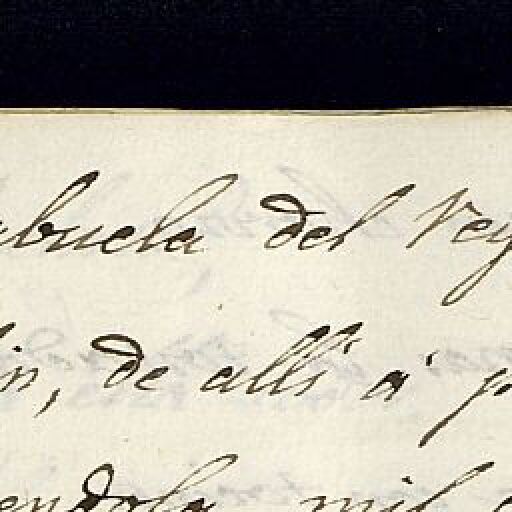 abuela del Rey
in, de allí á p
endola mil